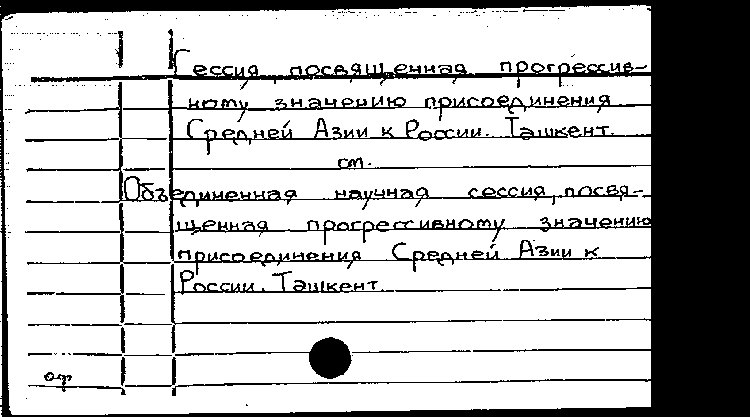 Сессия, посвященная прогрессив-
ному значению присоединения
Средней Азии к России. Ташкент.
см.
Объединенная научная сессия, посвя-
щенная прогрессивному значению
присоединения Средней Азии к
России. Ташкент.
оф